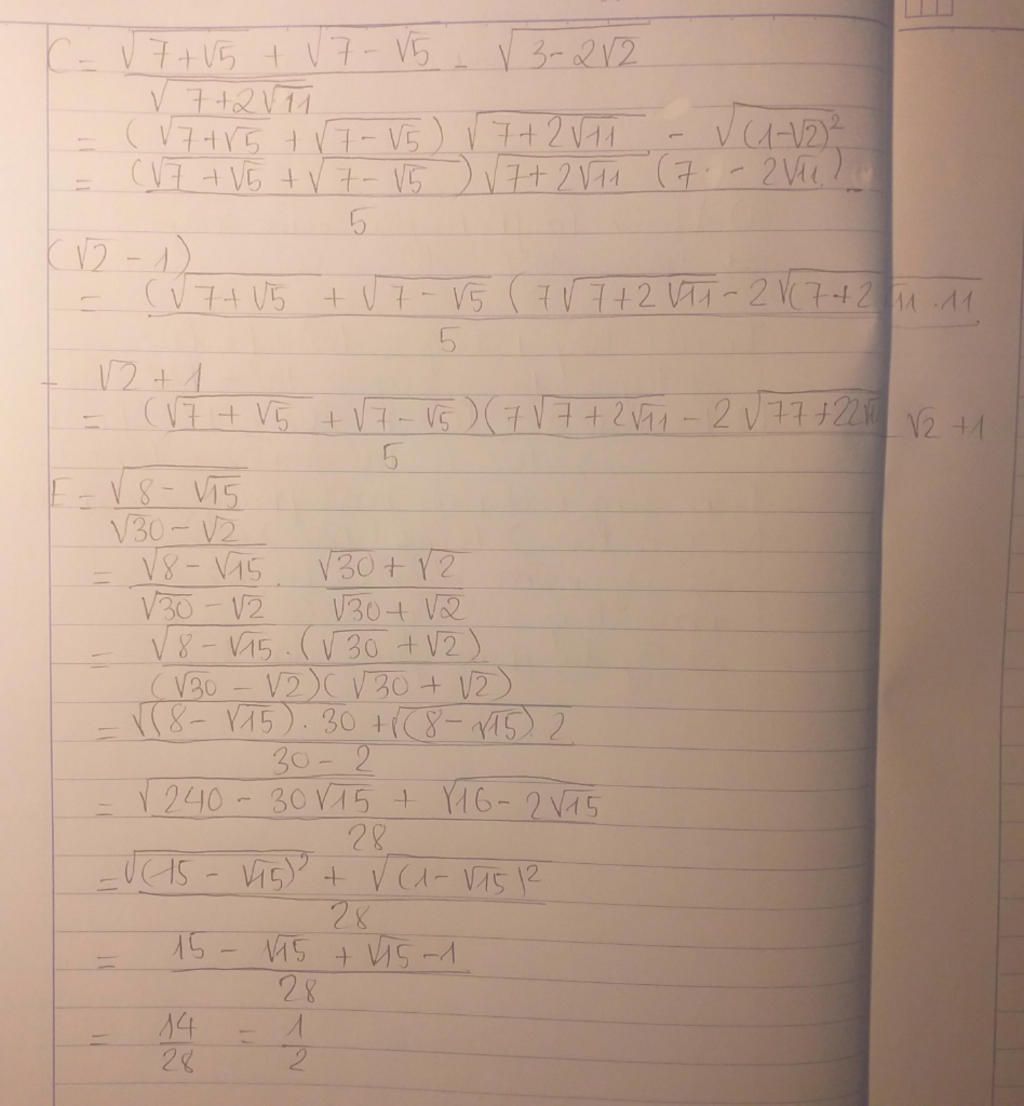 C = (√(7+√5) + √(7-√5))/√(7+2√11) - √(3-2√2)
= (√(7+√5) + √(7-√5)) √(7+2√11) - √((1-√2)²)
= ((√(7+√5) + √(7-√5)) √(7+2√11) (7 - 2√11))/5 -
(√2 - 1)
= (√(7+√5) + √(7-√5) (7√(7+2√11) - 2√((7+2√11 . 11)/5
- √2 + 1
= (√(7+√5) + √(7-√5))(7√(7+2√11) - 2√(77+22√11)/5 √2 + 1
E = √(8-√15)/(√30 - √2)
= √(8-√15)/(√30 - √2) . (√30 + √2)/(√30 + √2)
= (√(8-√15) . (√30 + √2))/((√30 - √2)(√30 + √2))
= (√((8-√15) . 30) + √((8-√15) . 2))/(30 - 2)
= (√(240 - 30√15) + √(16 - 2√15))/28
= (√((15-√15)²) + √((1-√15)²))/28
= (15 - √15 + √15 - 1)/28
= 14/28 = 1/2